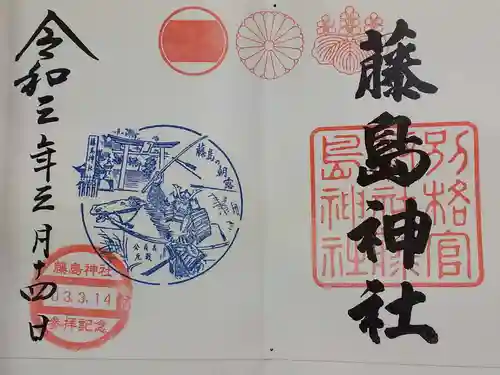 藤島神社
別格官
幣社藤
島神社
藤島の朝露
藤島神社
令和三年三月十四日
藤島神社
03.3.14
参拝記念